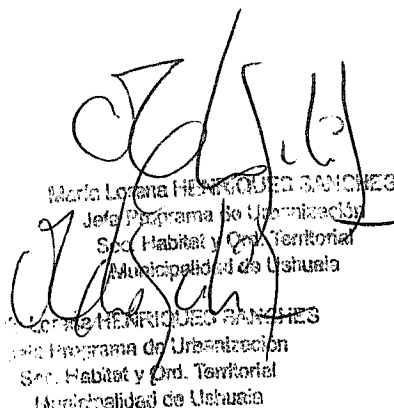 María Lorena HENRIQUES SANCHES
Jefa Programa de Urbanización
Sec. Habitat y Ord. Territorial
Municipalidad de Ushuaia
Lorena HENRIQUES SANCHES
Jefa Programa de Urbanización
Sec. Habitat y Ord. Territorial
Municipalidad de Ushuaia